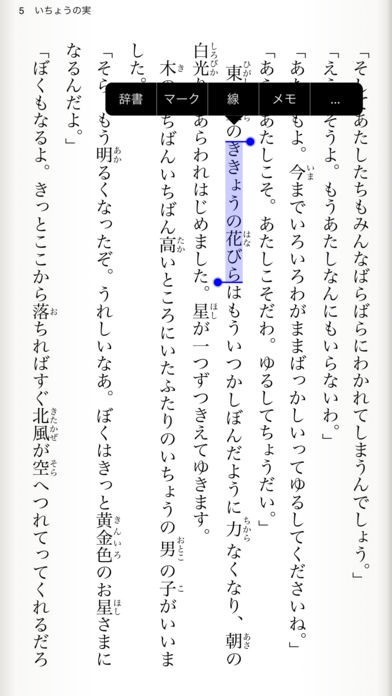 5 いちょうの実
辞書 マーク 線 メモ ...
「そしてあたしたちもみんなばらばらにわかれてしまうんでしょう。」
「え そうよ。もうあたしなんにもいらないわ。」
「あた もよ。今までいろいろわがままばっかしいってゆるしてくださいね。」
「あ あたしこそ。あたしこそだわ。ゆるしてちょうだい。」
東 のききょうの花びらはもういつかしぼんだように力なくなり、朝の
白光り あらわれはじめました。星が一つずつきえてゆきます。
木の ばんいちばん高いところにいたふたりのいちょうの男の子がいいま
した。
「そら もう明るくなったぞ。うれしいなあ。ぼくはきっと黄金色のお星さまに
なるんだよ。」
「ぼくもなるよ。きっとここから落ちればすぐ北風が空へつれてってくれるだろ